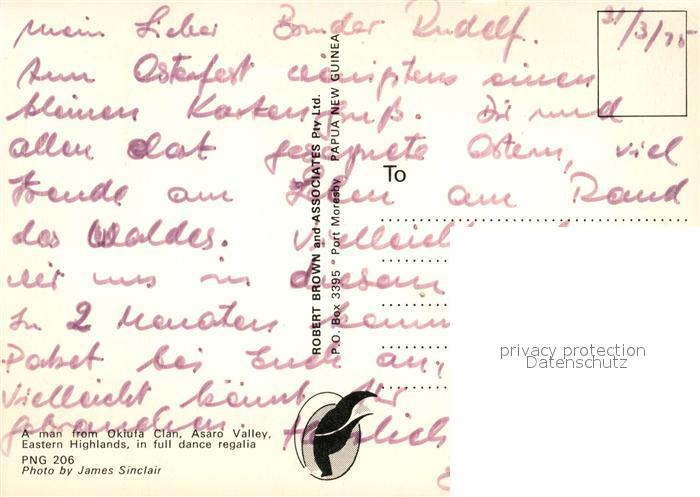 31/3/75
Mein Lieber Bruder Rudolf.
Zum Osterfest wenigstens einen
kleinen Kartengruß. Dir und
allen dort gesegnete Ostern, viel
Freude am Leben am Rand
des Waldes. Vielleicht
wir uns in diesem
In 2 Monaten kommt
Paket bei Euch an,
vielleicht könnt Ihr
gebrauchen. Herzlich
To
ROBERT BROWN and ASSOCIATES Pty Ltd.
P.O. Box 3395 · Port Moresby PAPUA NEW GUINEA
A man from Oklufa Clan, Asaro Valley,
Eastern Highlands, in full dance regalia
PNG 206
Photo by James Sinclair
privacy protection
Datenschutz